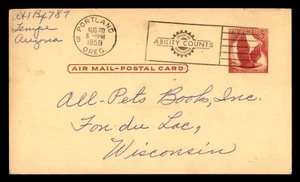 Rt 1 Bx 787
Tempe
Arizona
PORTLAND
AUG 10
PM
1959
OREG.
ABILITY COUNTS
AIR MAIL-POSTAL CARD
All-Pets Books, Inc.
Fon du Lac,
Wisconsin